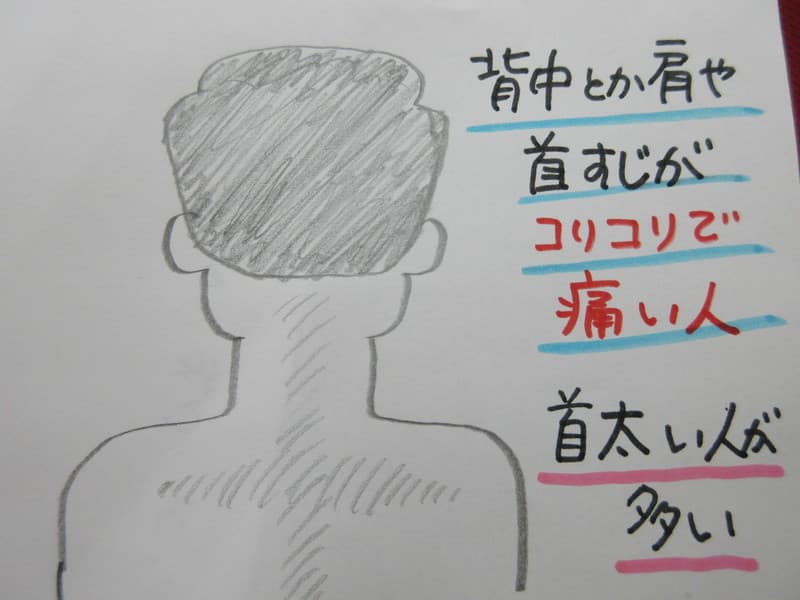 背中とか肩や
首すじが
コリコリで
痛い人
首太い人が
多い